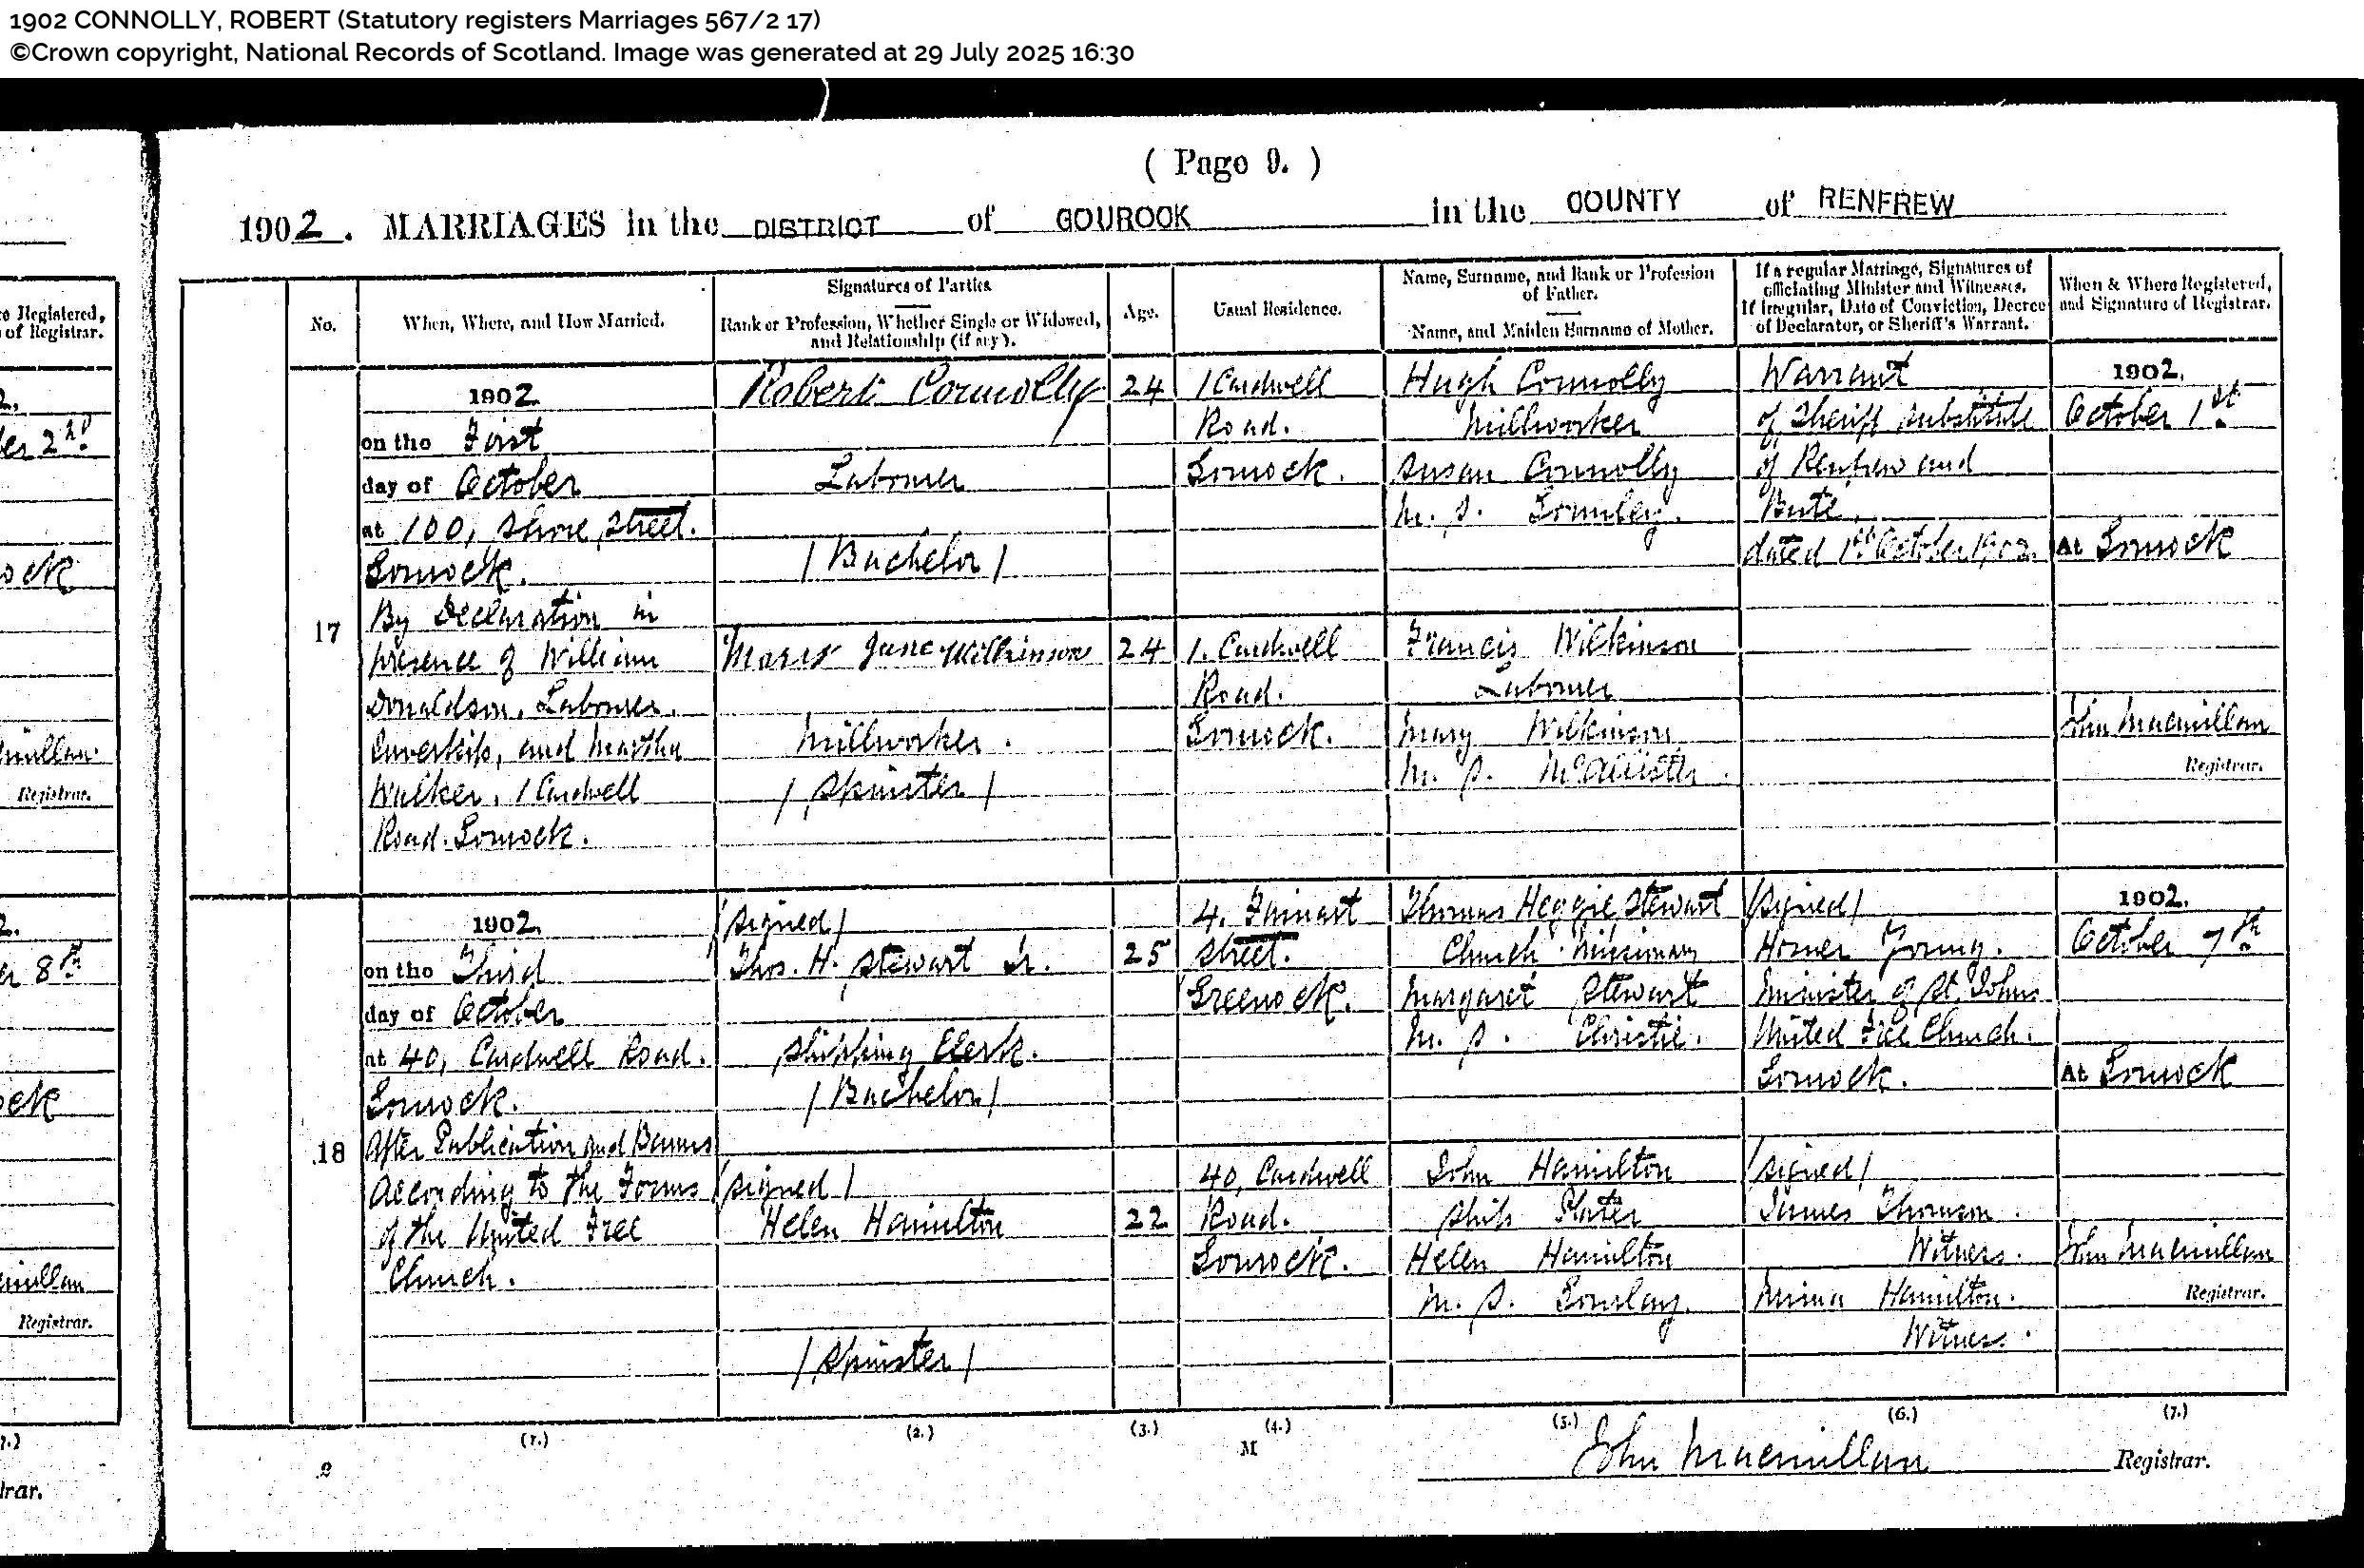 1902 CONNOLLY, ROBERT (Statutory registers Marriages 567/2 17)
©Crown copyright, National Records of Scotland. Image was generated at 29 July 2025 16:30
( Page 9. )
1902. MARRIAGES in the DISTRICT of GOUROCK in the COUNTY of RENFREW
No.
When, Where, and How Married.
Signatures of Parties.
Rank or Profession, Whether Single or Widowed,
and Relationship (if any).
Age.
Usual Residence.
Name, Surname, and Rank or Profession
of Father.
Name, and Maiden Surname of Mother.
If a regular Marriage, Signatures of
officiating Minister and Witnesses.
If irregular, Date of Conviction, Decree
of Declarator, or Sheriff's Warrant.
When & Where Registered,
and Signature of Registrar.
17
1902.
on the First
day of October
at 100, Shore Street.
Gourock.
By Declaration in
presence of William
Donaldson, Labourer,
Inverkip, and Martha
Walker, 1 Cardwell
Road. Gourock.
Robert Connolly
Labourer
(Bachelor)
Mary Jane Wilkinson
Millworker.
(Spinster)
24
24
1 Cardwell
Road.
Gourock.
1. Cardwell
Road.
Gourock.
Hugh Connolly
Millworker
Susan Connolly
M. S. Gormley.
Francis Wilkinson
Labourer
Mary Wilkinson
M. S. McAllister.
Warrant
of Sheriff Substitute
of Renfrew and
Bute,
dated 1st October 1902.
1902.
October 1st.
At Gourock
John Macmillan
Registrar.
18
1902.
on the Third
day of October
at 40, Cardwell Road.
Gourock.
After Publication and Banns
According to the Forms
of the United Free
Church.
(Signed)
Thos. H. Stewart Jr.
Shipping Clerk.
(Bachelor)
(Signed)
Helen Hamilton
(Spinster)
25
22
4.
Street.
Greenock.
40, Cardwell
Road.
Gourock.
Thomas Heggie Stewart
Church Missionary
Margaret Stewart
M. S. Christie.
John Hamilton
Ship Plater
Helen Hamilton
M. S. Gourlay.
(Signed)
Homer Young.
Minister of St. Johns
United Free Church.
Gourock.
(Signed)
James Thomson.
Witness.
Mina Hamilton.
Witness.
1902.
October 7th.
At Gourock
John Macmillan
Registrar.
(1.) (2.) (3.) (4.) (5.) (6.) (7.)
2
M
John Macmillan Registrar.